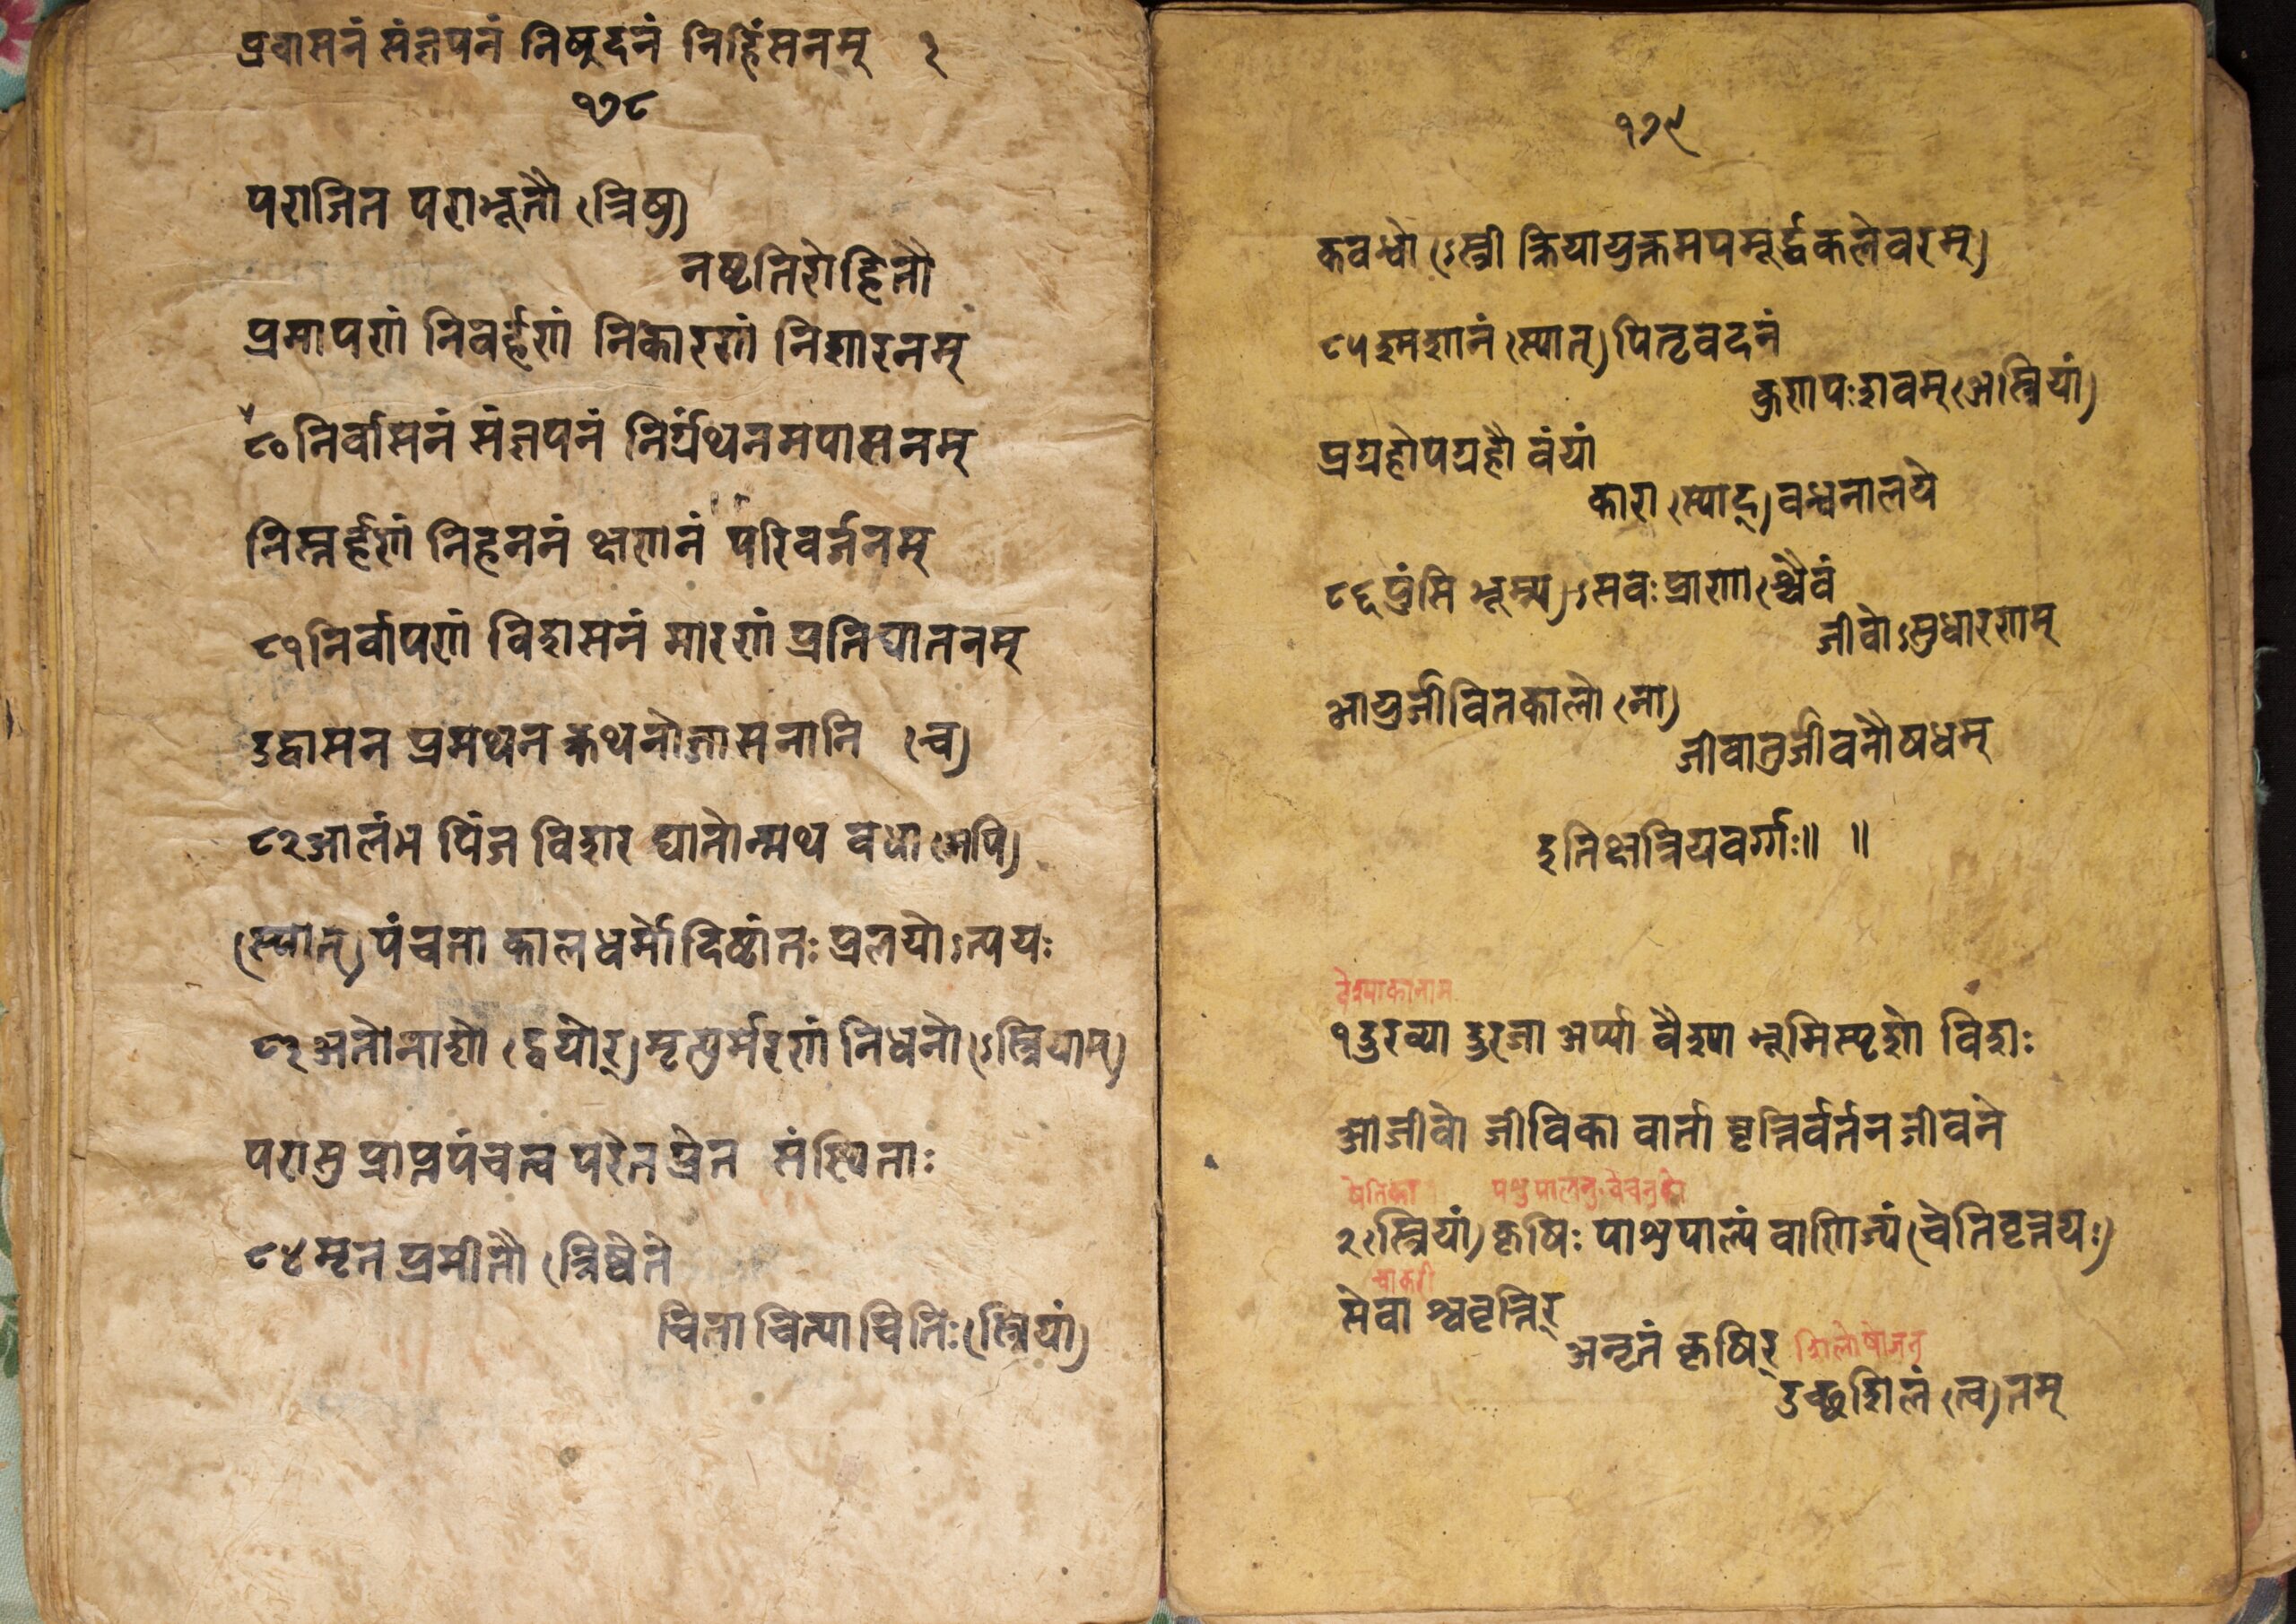 प्रवासनं संज्ञपनं निषुदनं निहिंसनम् २
१७८
पराजित पराभूतौ (त्रिषु)
नष्टतिरोहितौ
प्रमापणं निवर्हणं निकारणं निशारनम्
८०निर्वासनं संज्ञपनं निर्ग्रंथनमपासनम्
निस्तर्हणं निहननं क्षणनं परिवर्जनम्
८१निर्वापणं विशसनं मारणं प्रतिघातनम्
उद्वासन प्रमथन क्रथनोज्जासनानि (च)
८२आलंभ पिंज विशर घातोन्मथ वधा (अपि)
(स्यात्) पंचता कालधर्मो दिष्टांतः प्रलयोऽत्ययः
८३अन्तोनाशो (द्वयोर्) मृत्युर्मरणं निधनो (ऽस्त्रियाम्)
परासु प्राप्तपंचत्व परेत प्रेत संस्थिताः
८४मृत प्रमीतौ (त्रिष्वेते
चिता चित्या चितिः (स्त्रियां)
१७९
कवन्धो (ऽस्त्री क्रियायुक्तमपमूर्द्धकलेवरम्)
८५श्मशानं (स्यात्) पितृवदनं
कुणपःशवम् (अस्त्रियां)
प्रग्रहोपग्रहौ वंद्यां
कारा (स्याद्) वन्धनालये
८६पुंसि भूम्न्य)ऽसवः प्राणाश्चैवं
जीवोऽसुधारणाम्
आयुर्जीवितकालो (ना)
जीवातुर्जीवनौषधम्
इतिक्षत्रियवर्ग्गः॥ ॥
वैश्याकानाम
१उरव्या उरुजा अर्य्या वैश्या भूमिस्पृशो विशः
आजीवो जीविका वार्ता वृत्तिर्वर्तन जीवने
षेतिका पशुपालनु वेचनुको
२(स्त्रियां) कृषिः पाशुपाल्यं वाणिज्यं (चेतिवृत्तयः)
चाकरी
सेवा श्ववृत्तिर्
अनृतं कृषिर् शिलोषोजनु
उच्छशिलं (त्व) तम्